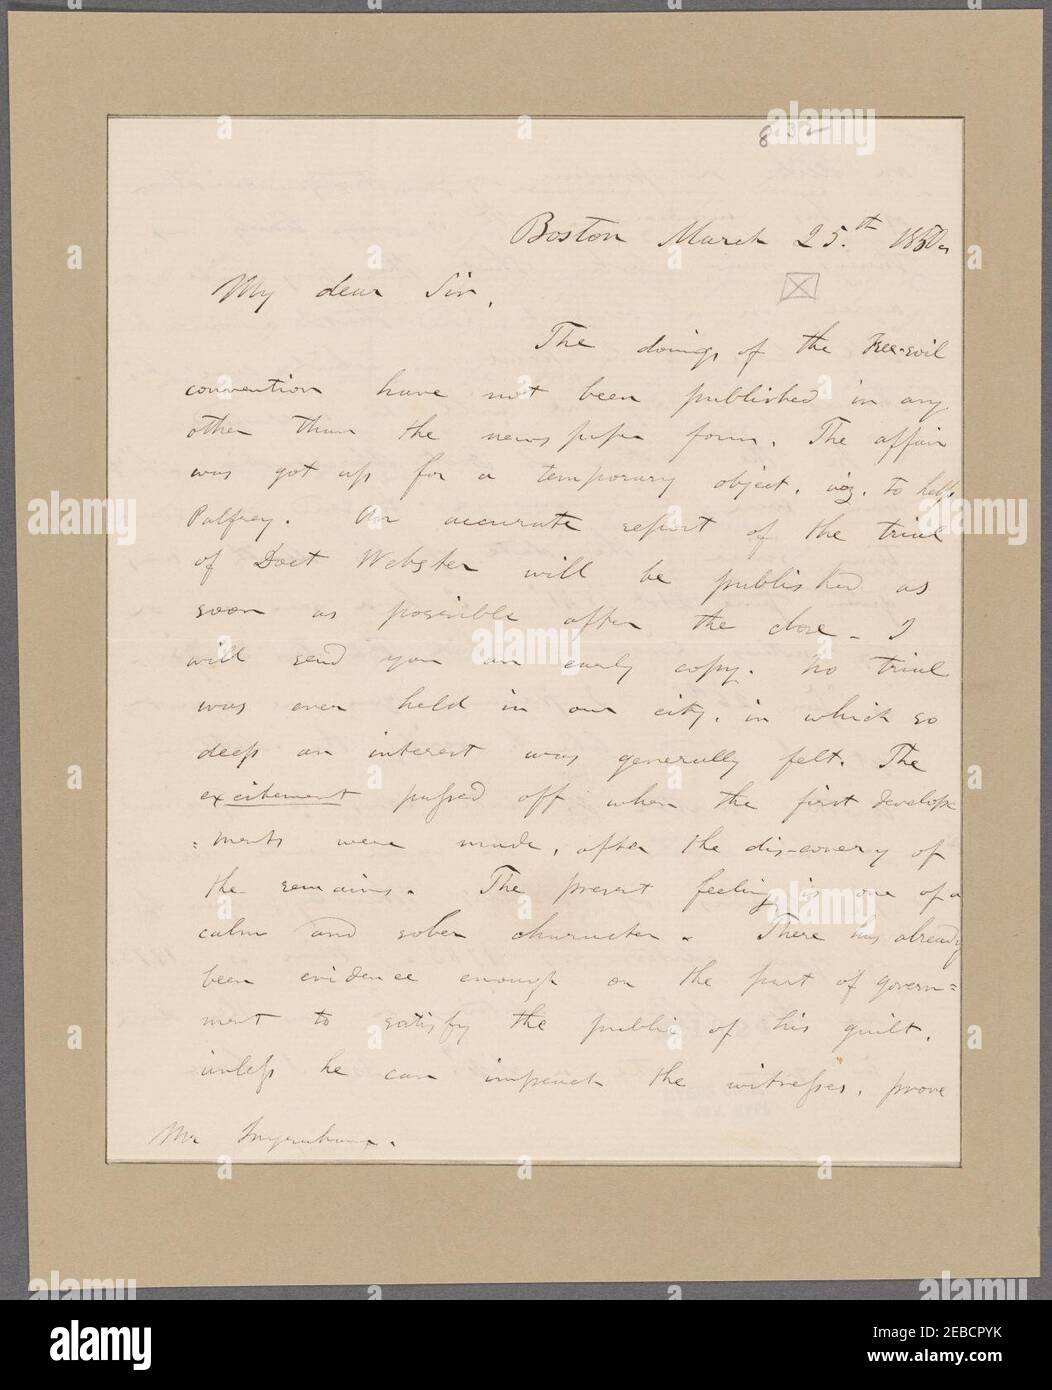 832
Boston March 25.th 1850.
My dear Sir,
The doings of the Free-soil
convention have not been published in any
other than the news paper form. The affair
was got up for a temporary object, viz. to help
Palfrey. An accurate report of the trial
of Doct Webster will be published as
soon as possible after the close - I
will send you an early copy. No trial
was ever held in our city, in which so
deep an interest was generally felt. The
excitement passed off when the first develope
=ments were made, after the dis-covery of
the remains. The present feeling is one of a
calm and sober character. There has already
been evidence enough on the part of govern=
ment to satisfy the public of his guilt,
unless he can impeach the witnesses, prove
Mr Ingraham.
alamy
Image ID: 2EBCPYK
www.alamy.com